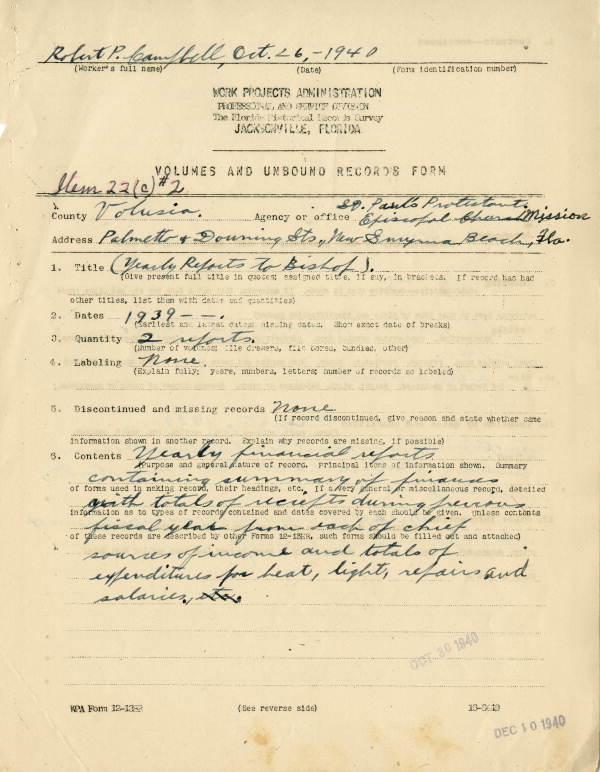 Robert P. Campbell, Oct. 26, -1940
(Worker's full name) (Date) (Form identification number)
WORK PROJECTS ADMINISTRATION
PROFESSIONAL AND SERVICE DIVISION
The Florida Historical Records Survey
JACKSONVILLE, FLORIDA
VOLUMES AND UNBOUND RECORDS FORM
Item 22(c) #2
St. Paul's Protestant
County Volusia. Agency or office Episcopal Church Mission
Address Palmetto & Downing Sts., New Smyrna Beach, Fla.
1. Title (Yearly Reports to Bishop).
(Give present full title in quotes; assigned title, if any, in brackets. If record has had
other titles, list them with dates and quantities)
2. Dates 1939 - -.
(Earliest and latest dates; missing dates. Show exact date of breaks)
3. Quantity 2 reports.
(Number of volumes; file drawers, file boxes, bundles, other)
4. Labeling None.
(Explain fully; years, numbers, letters; number of records so labeled)
5. Discontinued and missing records None
(If record discontinued, give reason and state whether same
information shown in another record. Explain why records are missing, if possible)
6. Contents Yearly financial reports
(Purpose and general nature of record. Principal items of information shown. Summary
containing summary of finances
of forms used in making record, their headings, etc. If a very general or miscellaneous record, detailed
with totals of reciepts during previous
information as to types of records contained and dates covered by each should be given, unless contents
fiscal year from each of chief
of these records are described by other Forms 12-13HR, such forms should be filled out and attached)
sources of income and totals of
expenditures for heat, light, repairs and
salaries, etc.
OCT 30 1940
WPA Form 12-13HR (See reverse side)
DEC 10 1940